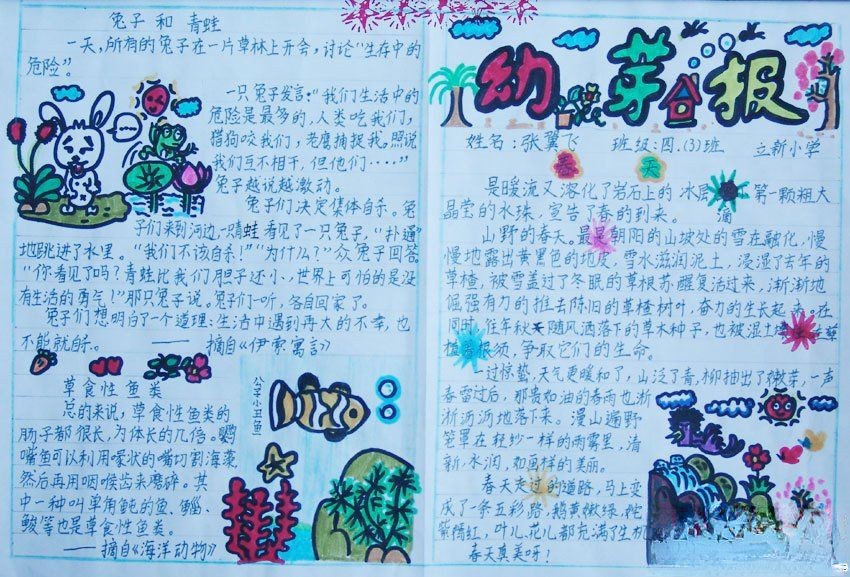 兔子和青蛙
一天,所有的兔子在一片草林上开会,讨论“生存中的
危险”。
一只兔子发言:“我们生活中的
危险是最多的,人类吃我们,
猎狗咬我们,老鹰捕捉我。照说
我们互不相干,但他们····”
兔子越说越激动。
兔子们决定集体自杀。兔
子们来到河边,一只青蛙看见了一只兔子。“扑通”
地跳进了水里。“我们不该自杀!”“为什么?”众兔子回答
“你看见了吗?青蛙比我们胆子还小,世界上可怕的是没
有生活的勇气!”那只兔子说。兔子们一听,各自回家了。
兔子们想明白了一个道理:生活中遇到再大的不幸,也
不能就自杀。——摘自《伊索寓言》
草食性鱼类
总的来说,草食性鱼类的
肠子都很长,为体长的几倍。鹦
嘴鱼可以利用喙状的嘴切割海藻,
然后再用咽喉齿来磨碎。其
中一种叫单角鲀的鱼、鲻、
鲅等也是草食性鱼类。
——摘自《海洋动物》
公子小丑鱼
幼芽报
姓名:张翼飞 班级:四.(3)班 立新小学
春天
是暖流又溶化了岩石上的冰层 第一颗粗大
滴
晶莹的水珠,宣告了春的到来。
山野的春天。最是朝阳的山坡处的雪在融化,慢
慢地露出黄黑色的地皮,雪水滋润泥土,浸湿了去年的
草楂,被雪盖过了冬眠的草根苏醒复活过来,渐渐地
倔强有力的推去陈旧的草楂树叶,奋力的生长起来。在
同时,往年秋天随风洒落下的草木种子,也被湿土
植 根须,争取它们的生命。
一过惊蛰,天气更暖和了,山泛了青,柳抽出了嫩芽,一声
春雷过后,那贵如油的春雨也淅
淅沥沥地落下来。漫山遍野
笼罩在轻纱一样的雨雾里,清
新、水润,如画样的美丽。
春天走过的道路,马上变
成了一条五彩路,鹅黄嫩绿,姹
紫嫣红,叶儿、花儿都充满了生机
春天真美呀!